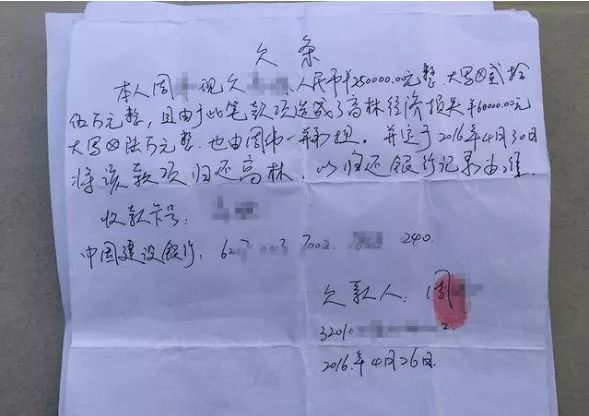 欠条
本人周 现欠 人民币￥250000.00元整 大写⊗贰拾
伍万元整，且由于此笔款项造成了高林经济损失￥60000.00元
大写⊗陆万元整，也由周伟一并承担。并定于2016年4月30日
将该款项归还高林，以归还银行记录为准
收款卡号：
中国建设银行：62 003 7002 240
欠款人：周
3201 2
2016年4月26日